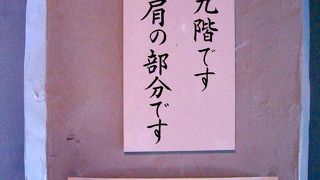 九階です
肩の部分です